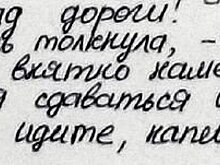 д дороги!
ь толкнула, -
внятно каме
я сдаваться
идите, капи